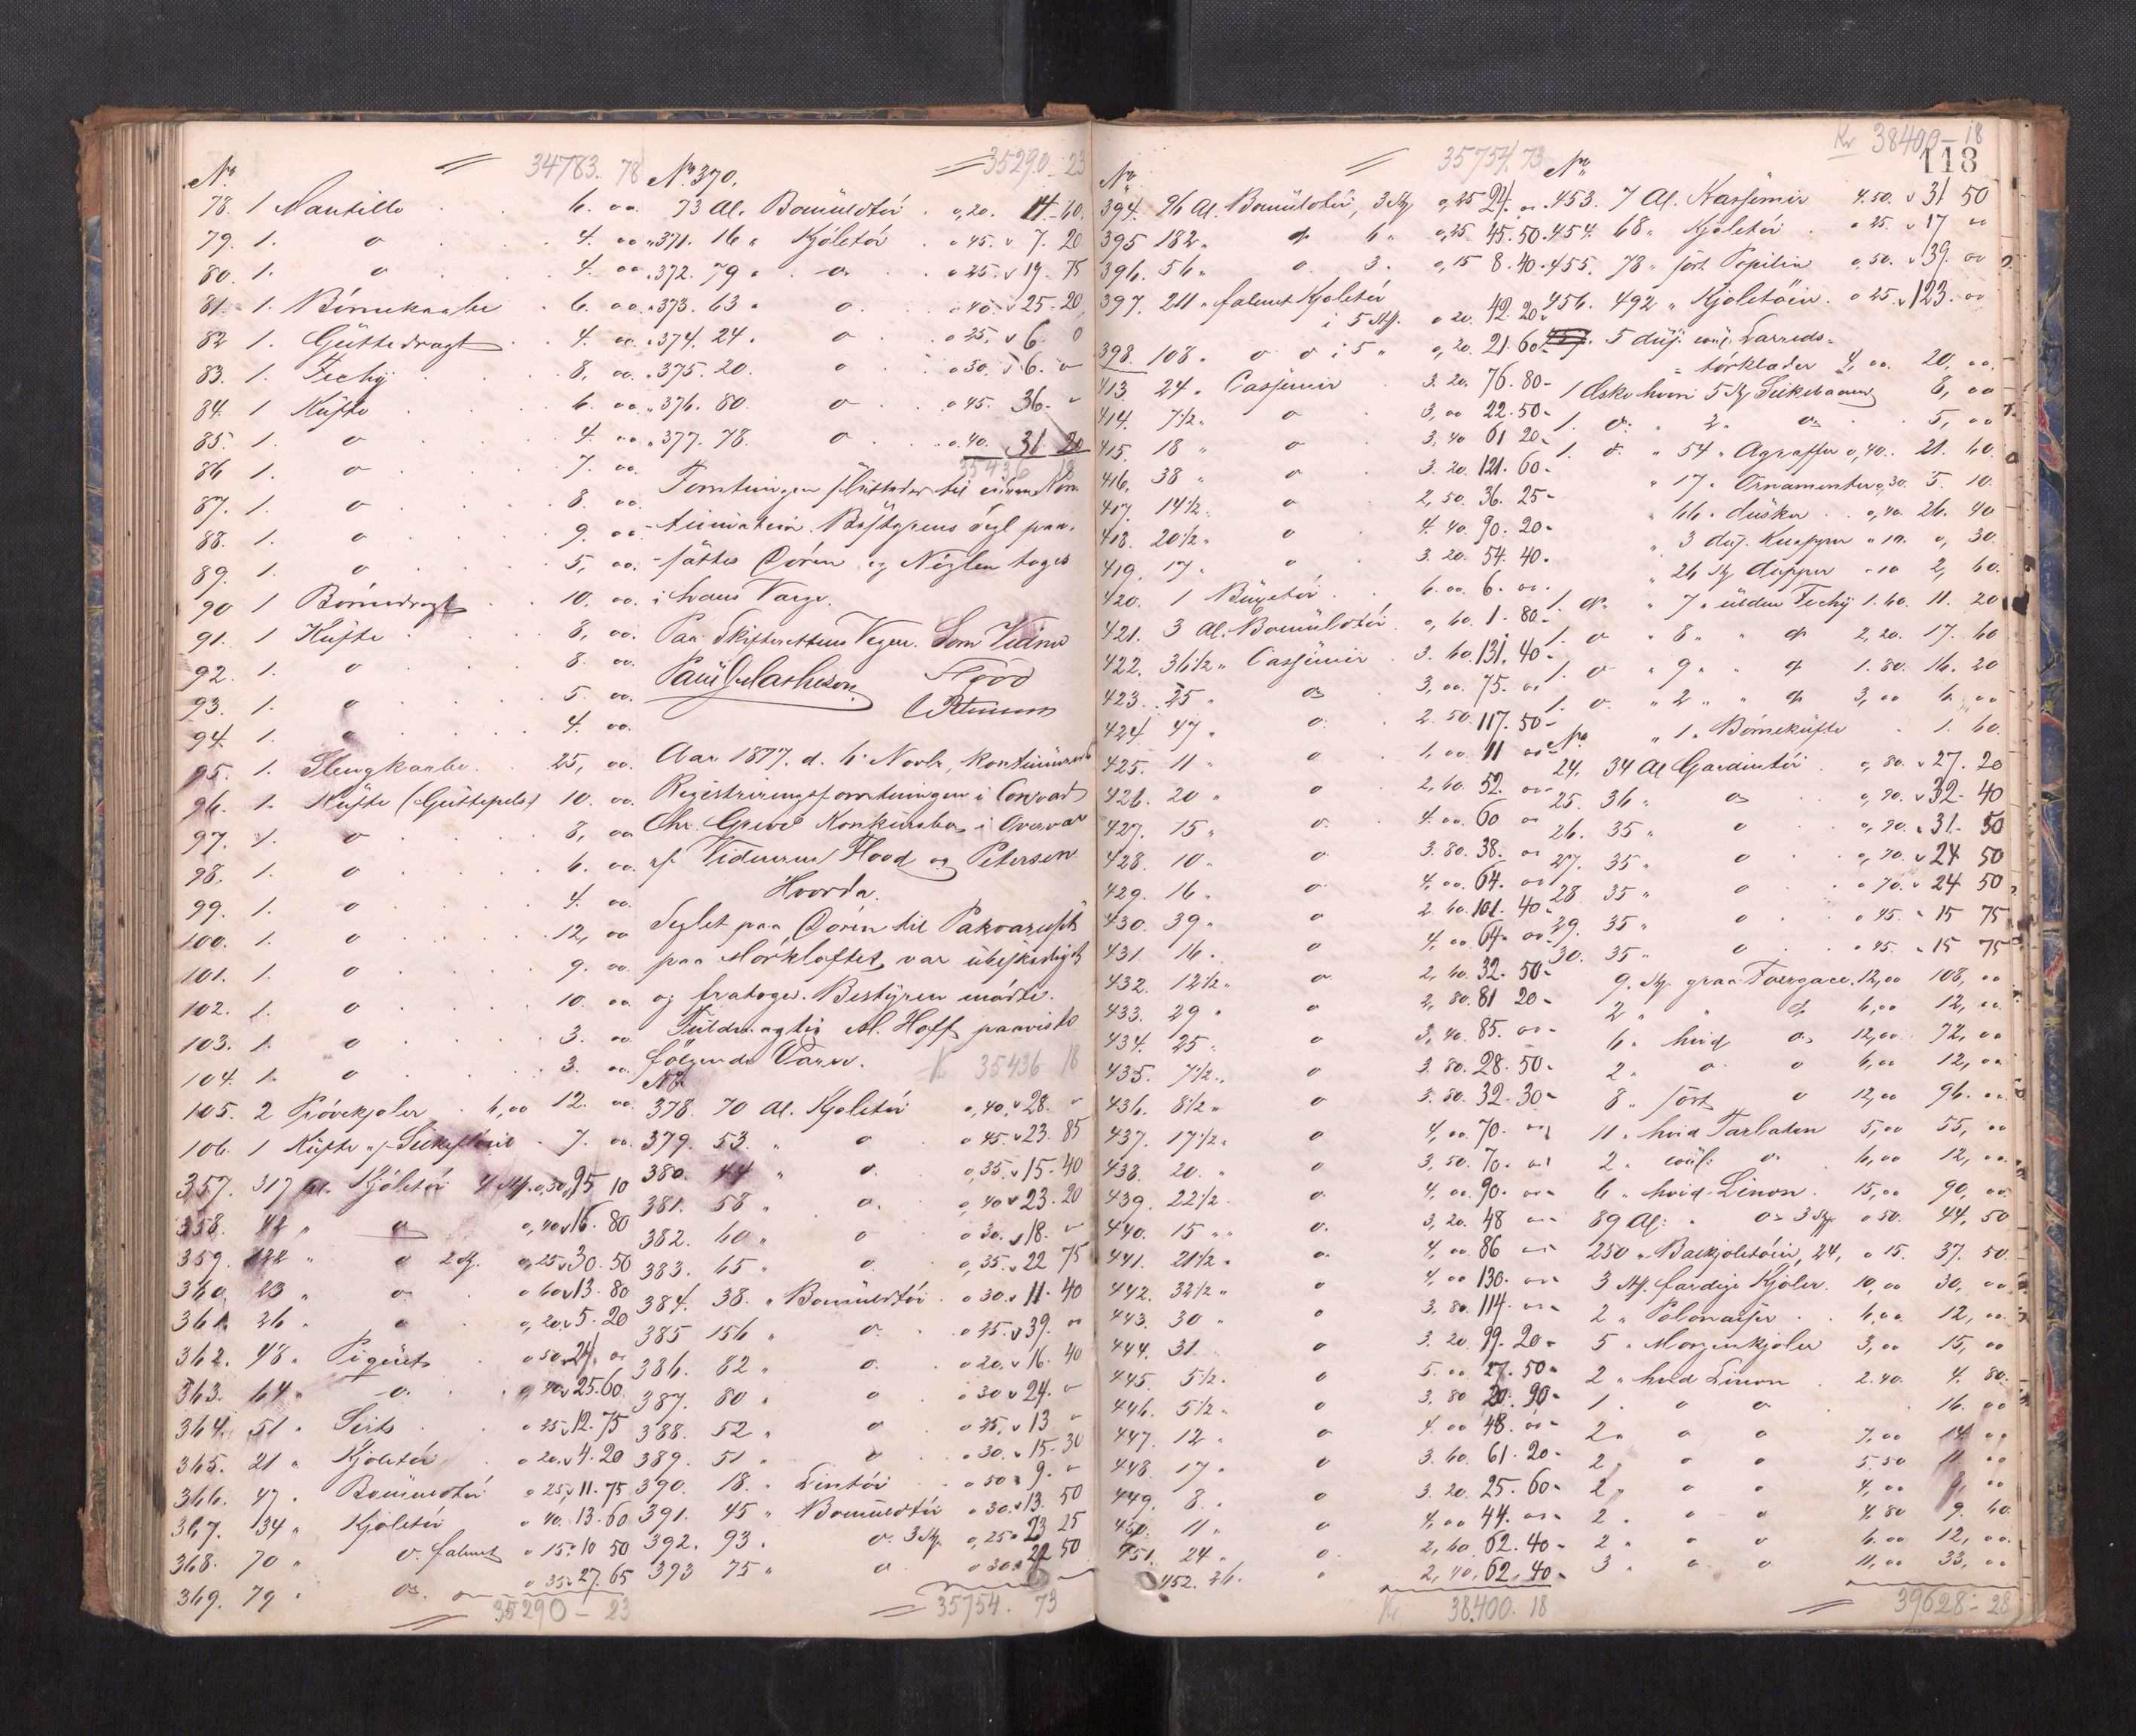 34783. 78
No
78. 1 Mantille . . 6. oo
79. 1. o . . . 4. oo
80. 1. o . . . 4. oo
81. 1. Börnekaabe . 6. oo
82 1. Guttedragt . . 4. oo
83. 1. Fechy . . . 8, oo
84. 1 Kufte . . . 6. oo
85. 1. o . . . 4. oo
86 1. o . . . 7. oo
87. 1. o . . . 8. oo
88. 1. o . . . 9. oo
89. 1. o . . . 5, oo
90 1 Börnedragt . . 10. oo
91. 1 Kufte . . . 8, oo
92. 1. o . . . 8. oo
93. 1. o . . . 5. oo
94. 1. o . . . 4. oo
95. 1. Slengkaabe . . 25, oo
96. 1. Kufte (Guttepels) 10. oo
97. 1. o . . . 8, oo
98. 1. o . . . 6. oo
99. 1. o . . . 4. oo
100. 1. o . . . 12, oo
101. 1. o . . . 9. oo
102. 1. o . . . 10. oo
103. 1. o . . . 3. oo
104. 1. o . . . 3. oo
105. 2 Prövekjoler . 6,oo 12. oo
106. 1 Kufte . 7. oo
357. 317 Al. Kjoletöi 4 Stk. 0,30 95 10
358. 42 " o 0,40 16. 80
359. 122 " o 2 Stk. 0,25 30. 50
360. 23 " o o 60 13. 80
361. 26 " o 0,20 5. 20
362. 48 " Piquets o 50 24. oo
363. 64 " o. 0,40 25. 60
364. 51 " Sirts . o 25 12. 75
365. 21 " Kjoletöi . o 20 4. 20
366. 47 " Bomuldstöi o 25 11. 75
367. 34 " Kjoletöi o 40. 13. 60
368. 70 " o. falmet o 15 10 50
369. 79 " o o 35 27. 65
35290 - 23
35290 - 23
No 370.
73 Al. Bomuldtöi . 0,20. 14. 60.
371. 16 " Kjoletöi . o 45. 7. 20
372. 79 " o . o 25. 19. 75
373. 63 " o . o 40. 25. 20
374. 24 " o . o 25. 6. o
375. 20. o . o 30. 6. o
376. 80. o . o 45. 36. "
377. 78. o . o 40. 31. 20
35436 18
Forretningen sluttedes til videre Kon
tinuation. Bestyrens Segl paa-
sättes Dören og Nöglen toges
i hans Varge.
Paa Skifterettens Vegne. Som Vidne
Hood
CPetersen
Aar 1877. d. 6 Novbr, kontinueredes
Registreringsforretningen i Conrad
Chr. Greves Konkursbo i Overvær
af Vidnerne Hood og Petersen
Hvorda.
Seglet paa Dören til
paa Mörkloftet var ubeskadiget
og fratoges. Bestyren mödte.
Fuldmægtig Al. Hoff paaviste
fölgende Varer. Kr 35436 18
No
378. 70 Al. Kjoletöi 0,40. 28. "
379. 53. " o o 45. 23. 85
380. 44 " o. 0,35. 15. 40
381. 58 " o. 0,40 23. 20
382. 60 " o o 30. 18. "
383. 65 " o. 0,35. 22 75
384. 38. " Bomuldtöi . o 30. 11. 40
385 156 " o. . o 25. 39. oo
386. 82 " o. . o 20. 16. 40
387. 80 " o . o 30 24. "
388. 52 " o . o 25. 13 "
389. 51 " o . o 30. 15. 30
390. 18. " Lintöi . o 50 9. "
391. 45 " Bomuldtöi o 30. 13. 50
392. 93. " o. 3 Stk. 0,25 23 25
393 75 " o o 30 22 50
35754. 73
35754. 73
No
394. 96 Al. Bomuldtöi, 3 Stk 0,25 24. oo
395 182 " o 6 " 0,25 45. 50
396. 56 " o 3. 0,15 8. 40
397. 211 " falmet Kjoletöi
i 5 Stk. o 20. 42. 20
398. 108 " o o i 5 " 0,20. 21. 60
413. 24 " Casjemir . 3. 20. 76. 80
414. 7 1/2 " o 3, oo 22. 50
415. 18 " o 3. 40 61 20
416. 38 " o 3. 20. 121. 60
417. 14 1/2 " o 2, 50. 36. 25
418. 20 1/2 " o 4. 40. 90. 20
419. 17 " o 3. 20. 54. 40
420. 1 Buxetöi . . 6. oo 6. oo
421. 3 Al. Bomuldtöi 0, 60. 1. 80
422. 36 1/2 " Casjemir . 3. 60. 131. 40
423. 25 " o 3, oo. 75. oo
424. 47 " o 2. 50. 117. 50
425. 11 " o 1, oo. 11 oo
426. 20 " o 2, 60. 52. oo
427. 15 " o 4. oo. 60 oo
428. 10 " o 3. 80. 38. oo
429. 16 " o 4, oo. 64. oo
430. 39 " o 2. 60. 101. 40
431. 16. o 4, oo. 64. oo
432. 12 1/2 " o 2, 60. 32. 50
433. 29 " o 2, 80. 81 20
434. 25 " o 3, 40. 85. oo
435. 7 1/2 " o 3. 80. 28. 50
436. 8 1/2 " o 3. 80. 32. 30
437. 17 1/2 " o 4, oo. 70. oo
438. 20. " o 3, 50. 70. oo
439. 22 1/2 o. 4, oo. 90. oo
440. 15 " o. 3, 20. 48 oo
441. 21 1/2 " o 4, oo 86 oo
442. 32 1/2 " o 4, oo 130. oo
443. 30 " o 3. 80. 114. oo
444. 31 o 3. 20. 99. 20
445. 5 1/2 " o 5. oo 27. 50
446. 5 1/2 " o 3, 80 20. 90
447. 12 " o 4. oo 48. oo
448. 17 " o 3. 60. 61. 20
449. 8. " o 3. 20. 25. 60
450. 11 " o 4, oo 44. oo
451. 24 " o. 2, 60. 62. 40
452. 26. " 2, 40. 62. 40
Kr 38.400. 18
Kr 38400 - 18
118
No
453. 7 Al. Kasjemir 4. 50. 31 50
454. 68 " Kjoletöi . o 25. 17 oo
455. 78 " sört Popilin 0, 50. 39. oo
456. 492 " Kjoletöier. o 25. 123. oo
5 dus. coul. Larreds-
törklæder 4, oo. 20, oo
1 Æske hvori 5 Stk Silkebaand 8, oo
1. o. " 2 " o . . 5, oo
1. o. " 54 " Agraffer 0, 40.. 21. 60
" 17 " Ornamenter 0, 30. 5. 10.
" 66 " duske . . 0, 40. 26. 40
" 3 dus. Knapper " 10. 0, 30.
" 26 Stk dupper " 10 2, 60.
1. o. " 7 " ulden Fechy 1. 60. 11. 20
1. o " 8 " " o 2, 20. 17. 60
1. o " 9 " " o 1. 80. 16. 20
1. o. " 2 " " o 3, oo 6. oo
No " 1 " Börnekufte . 1. 60.
24. 34 Al Gardintöi . 0, 80. 27. 20
25. 36 " o . . 0, 90. 32. 40
26. 35 " o . . 0, 90. 31. 50
27. 35 " o . . 0, 70. 24 50
28. 35 " o . . o 70. 24 50
29. 35 " o . . o 45. 15 75
30. 35 " o . . o 45. 15 75
9. Stk. graa 12,oo 108, oo
2 " " o 6,oo 12, oo
6 " hvid o 12,oo 72, oo
2 " o o 6,oo 12, oo
8 " sört o 12,oo 96. oo
11 " hvid Tarlatan 5,oo 55, oo
2 " coul. o. 6,oo 12, oo
6 " hvid Linon . 15,oo 90, oo
89 Al. " o 3 Stk. o 50. 44, 50
250 " Balkjoletöier, 24, o 15. 37. 50.
3 Stk. færdige Kjoler. 10,oo 30, oo
2 " Polonaiser . . 6,oo. 12, oo.
5 " Morgenkjoler 3,oo 15, oo
2 " hvid Linon . 2. 40. 4. 80.
1 " o o . . 16. oo
2 " o o 7,oo 14 oo
2 " o o 5. 50 11 oo
2 " o o 4, oo 8, oo
2 " o o 4, 80 9. 60.
2 " o o 6. oo 12, oo.
3 " o o 11, oo 33, oo
39628 - 28